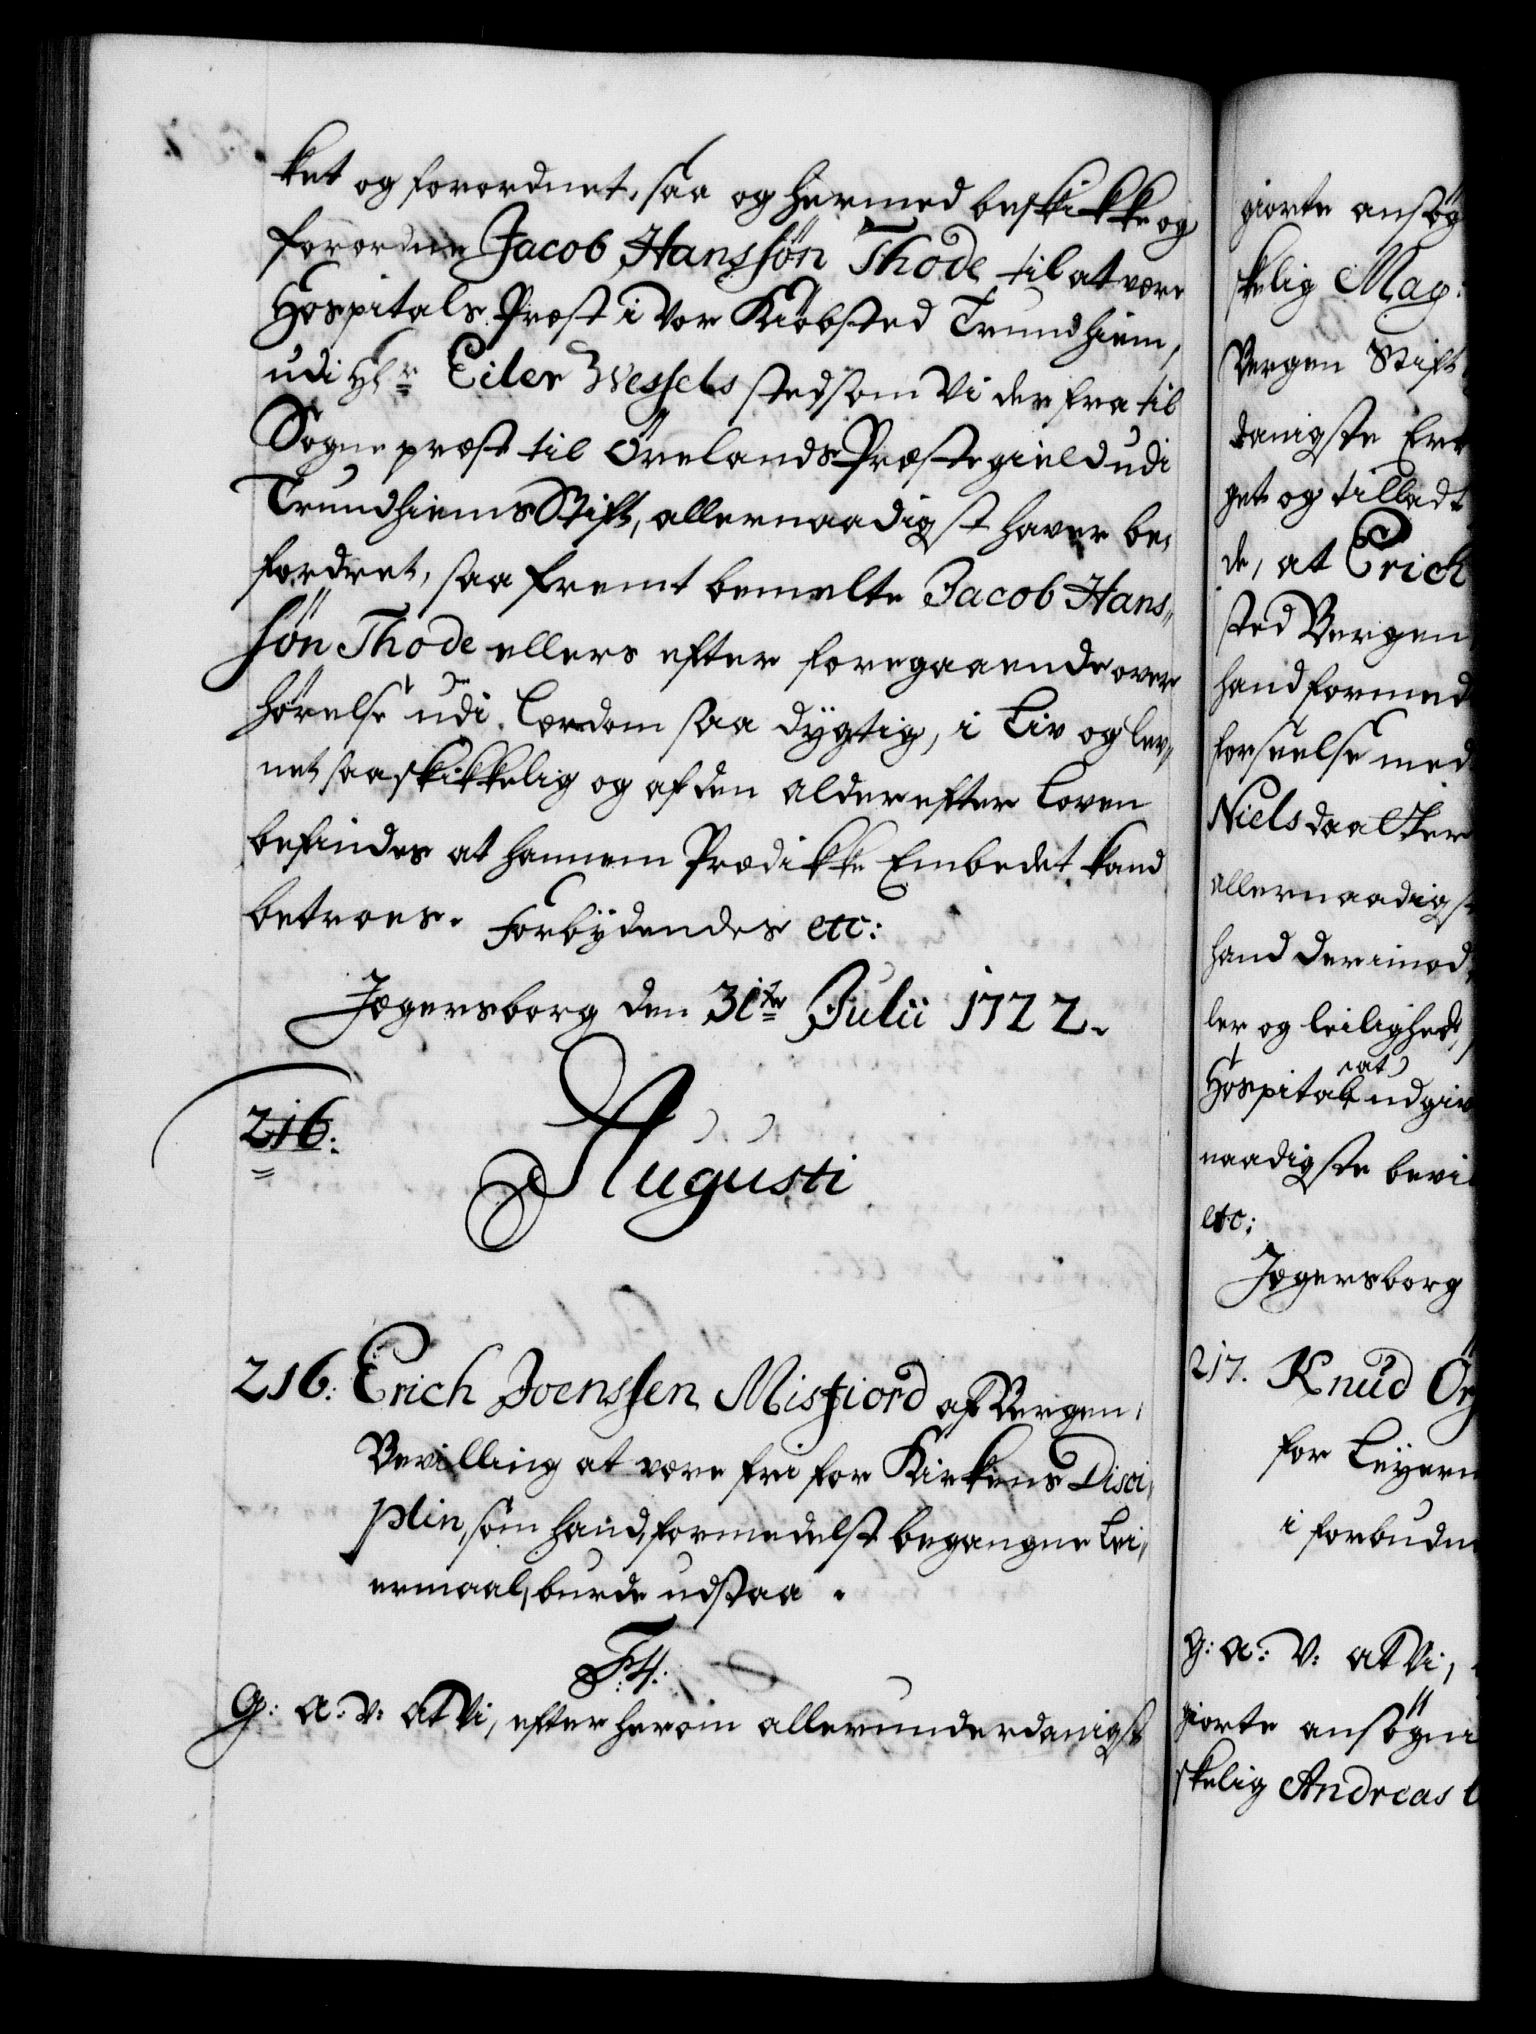 ket og forordnet, saa og hermed beskikke og
forordne Jacob Hanssøn Thode til at være
Hospitals Præst i Vor Kiøbsted Trundhiem,
udi Hr. Eiler Wessels sted som Vi derfra til
Sogne præst til Ørelands Præstegield udi
Trundhiems Stift, allernaadigst haver be,
fordret, saa fremt bemelte Jacob Hans,,
søn Thode ellers efter foregaaende over
hørelse udi Lærdom saa dygtig, i Liv og lev,,
net saa skikkelig og af den alder efter Loven
befindes at hannem Prædikke Embedet kand
betroes. Forbydendes etc:
Jægersborg den 31te Julii 1722.
216:
Augusti
216. Erich Joenssen Misfiord af Bergen,
Bevilling at være fri for Kirkens Disci,
plin, som hand, formedelst begangne Lei,,
ermaal, burde udstaa.
F:4.
G: A: V: At Vi, efter herom allerunderdanigst
giorte ansøg
skelig Mag:
Bergen Stift
danigste Er
get og tilladt
de, at Erich
sted Bergen
hand formed
forseelse med
Niels daatter
allernaadigst
hand derimod
ler og leilighed,
Hospital at udgiv
naadigste bevil
etc:
Jægersborg
217. Knud Ør
for Leyerm
i forbudne
G: A: V: At Vi,
giorte ansøgni
skelig Andreas